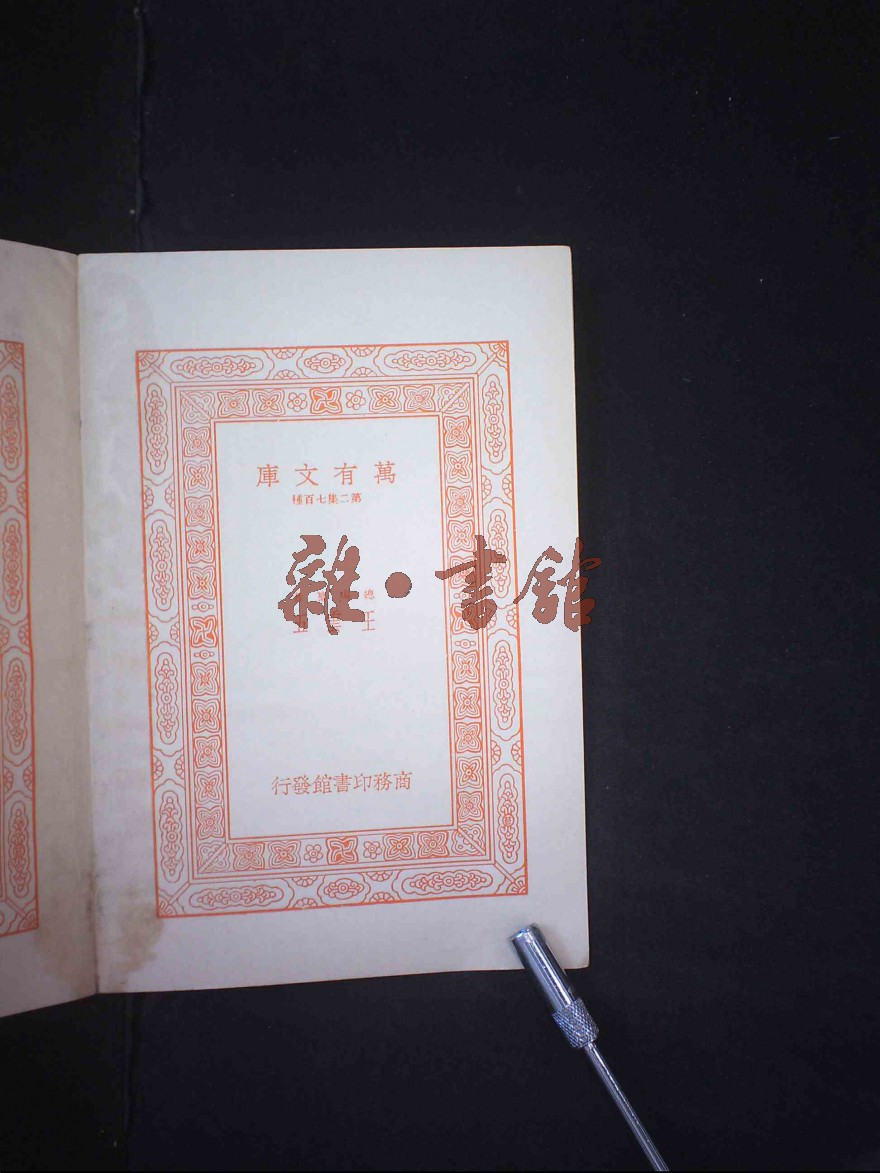 萬有文庫
第二集七百種
總
雜·書館
王雲五
商務印書館發行